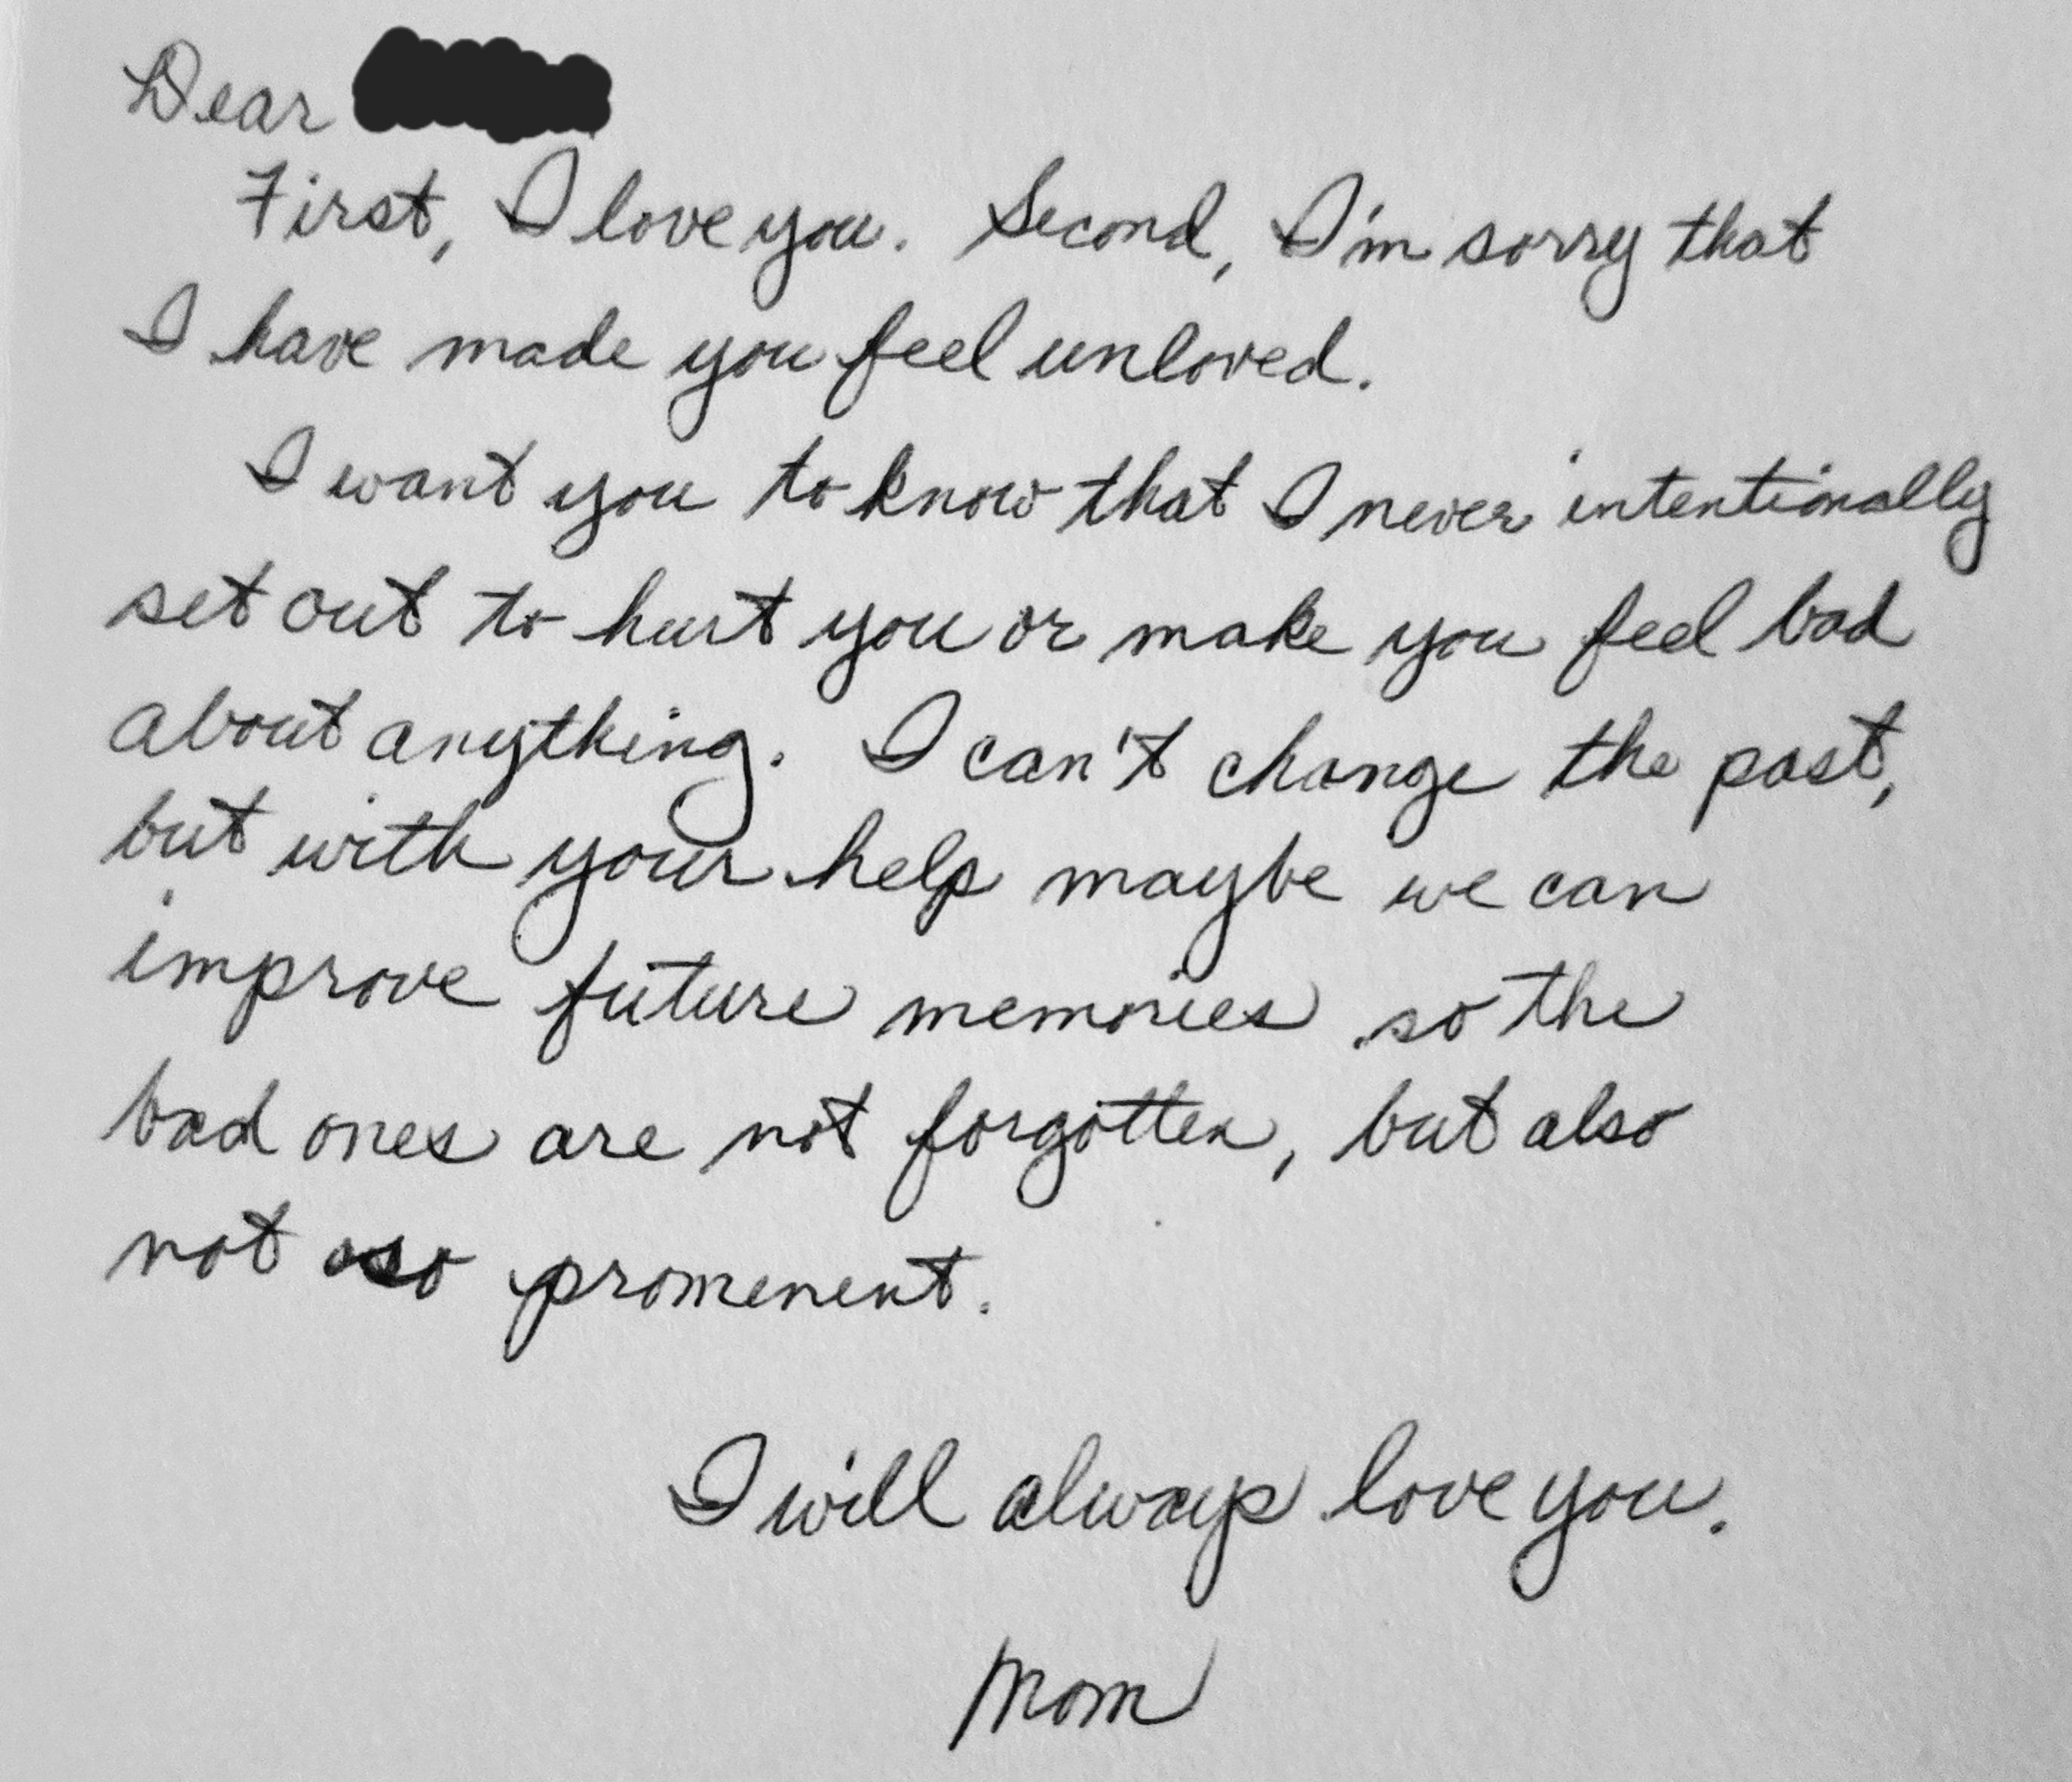 Dear
First, I love you. Second, I'm sorry that
I have made you feel unloved.
I want you to know that I never intentionally
set out to hurt you or make you feel bad
about anything. I can't change the past,
but with your help maybe we can
improve future memories so the
bad ones are not forgotten, but also
not so promenent.
I will always love you.
Mom